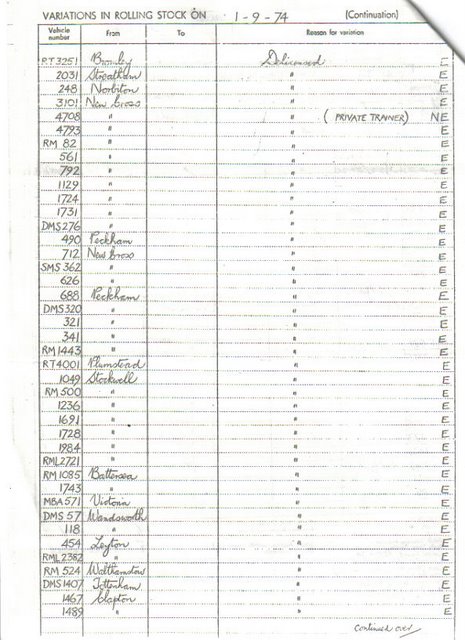 VARIATIONS IN ROLLING STOCK ON 1-9-74 (Continuation)
Vehicle number From To Reason for variation
RT3251 Bromley Delicensed E
2031 Streatham " E
248 Norbiton " E
3101 New Cross " E
4708 " " (PRIVATE TRAINER) NE
4793 " " E
RM 82 " " E
561 " " E
792 " " E
1129 " " E
1724 " " E
1731 " " E
DMS276 " " E
490 Peckham " E
712 New Cross " E
SMS 362 " " E
626 " " E
688 Peckham " E
DMS320 " " E
321 " " E
341 " " E
RM1443 " " E
RT4001 Plumstead " E
1049 Stockwell " E
RM 500 " " E
1236 " " E
1691 " " E
1728 " " E
1984 " " E
RML2721 " " E
RM1085 Battersea " E
1743 " " E
MBA571 Victoria " E
DMS 57 Wandsworth " E
118 " " E
454 Leyton " E
RML2382 " " E
RM 524 Walthamstow " E
DMS1407 Tottenham " E
1467 Clapton " E
1489 " " E
Continued over